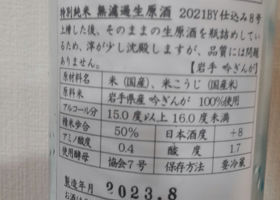 特別純米 無濾過生原酒 2021BY仕込み8号
上槽した後、そのままの生原酒を瓶詰めしている
ため、滓が少し沈殿しますが、品質には問題
ありません。
【岩手 吟ぎんが】
原材料名 米(国産)、米こうじ(国産米)
原料米 岩手県産 吟ぎんが 100%使用
アルコール分 15.0度以上16.0度未満
精米歩合 50% 日本酒度 +8
アミノ酸度 0.4 酸度 1.7
使用酵母 協会7号 保存方法 要冷蔵
製造年月 2023.8